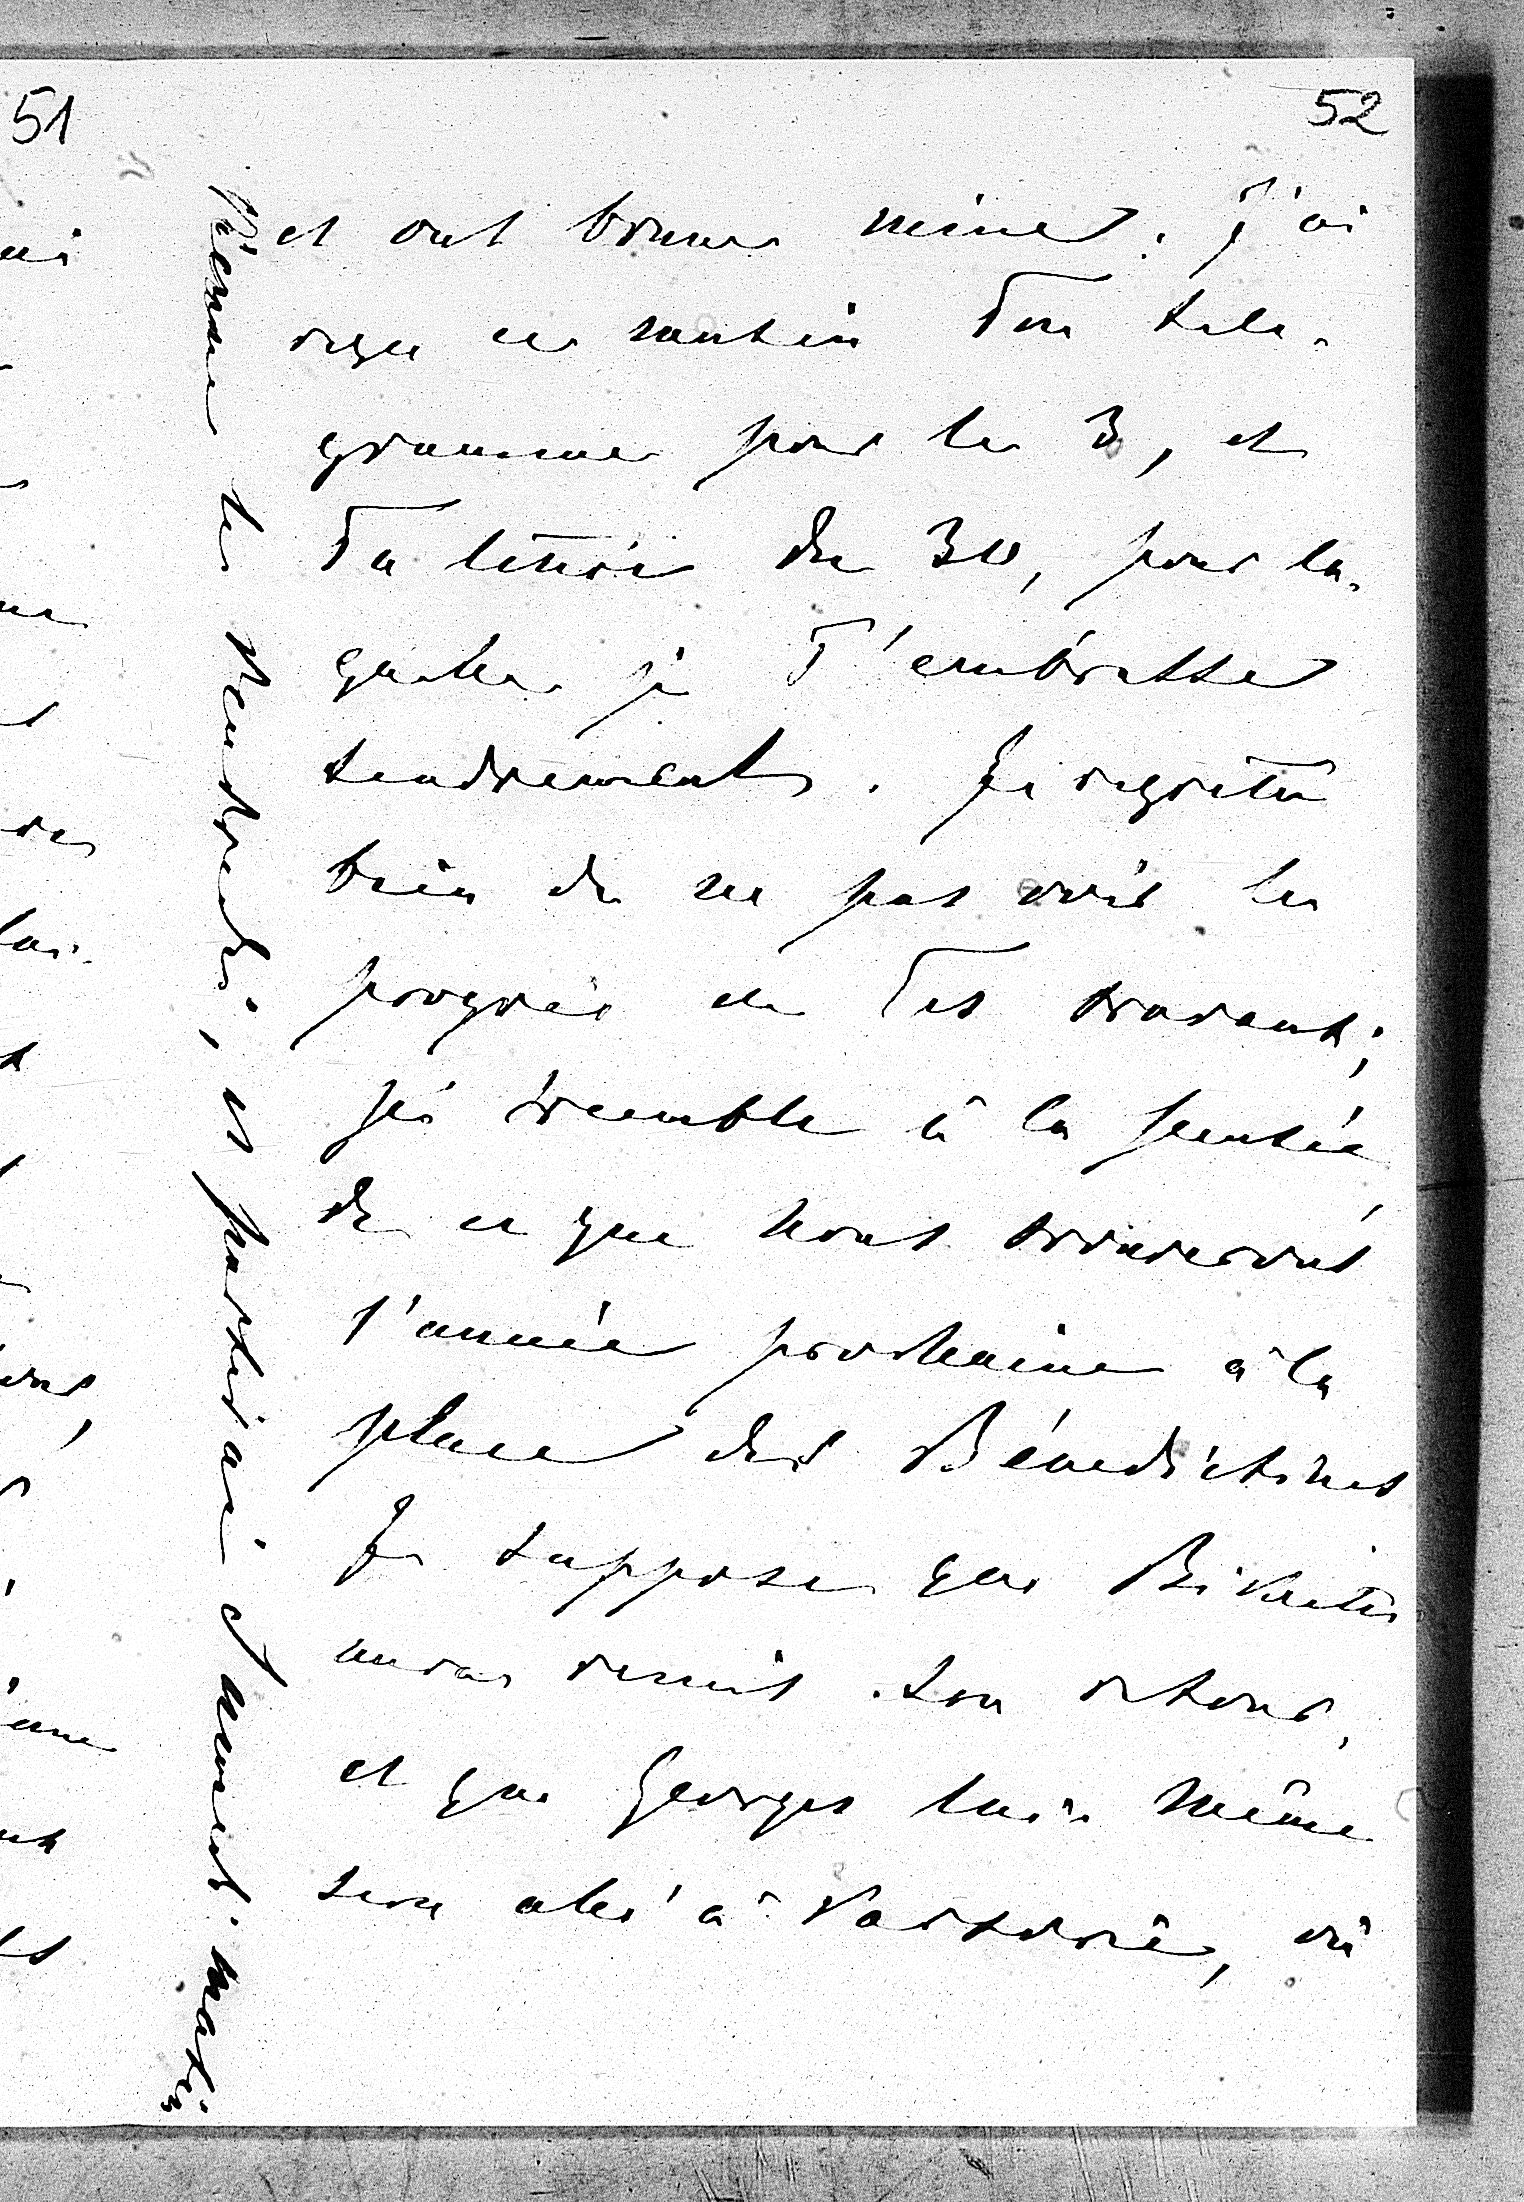 51
52
et ont bonne mine. J'ai
reçu ce matin Ton télé-
gramme pour le 3, et
Ta lettre du 30, pour la-
quelle je T'embrasse
tendrement. Je regrette
bien de ne pas voir les
progrès de Tes travaux;
je tremble à la pensée
de ce que nous trouverons
l'année prochaine à la
place des Bénédictines
Je suppose que Bikette
aura remis son retour,
et que Georges lui même
sera allé à Varsovie, où
Vienne le vendredi, et partirai samedi matin